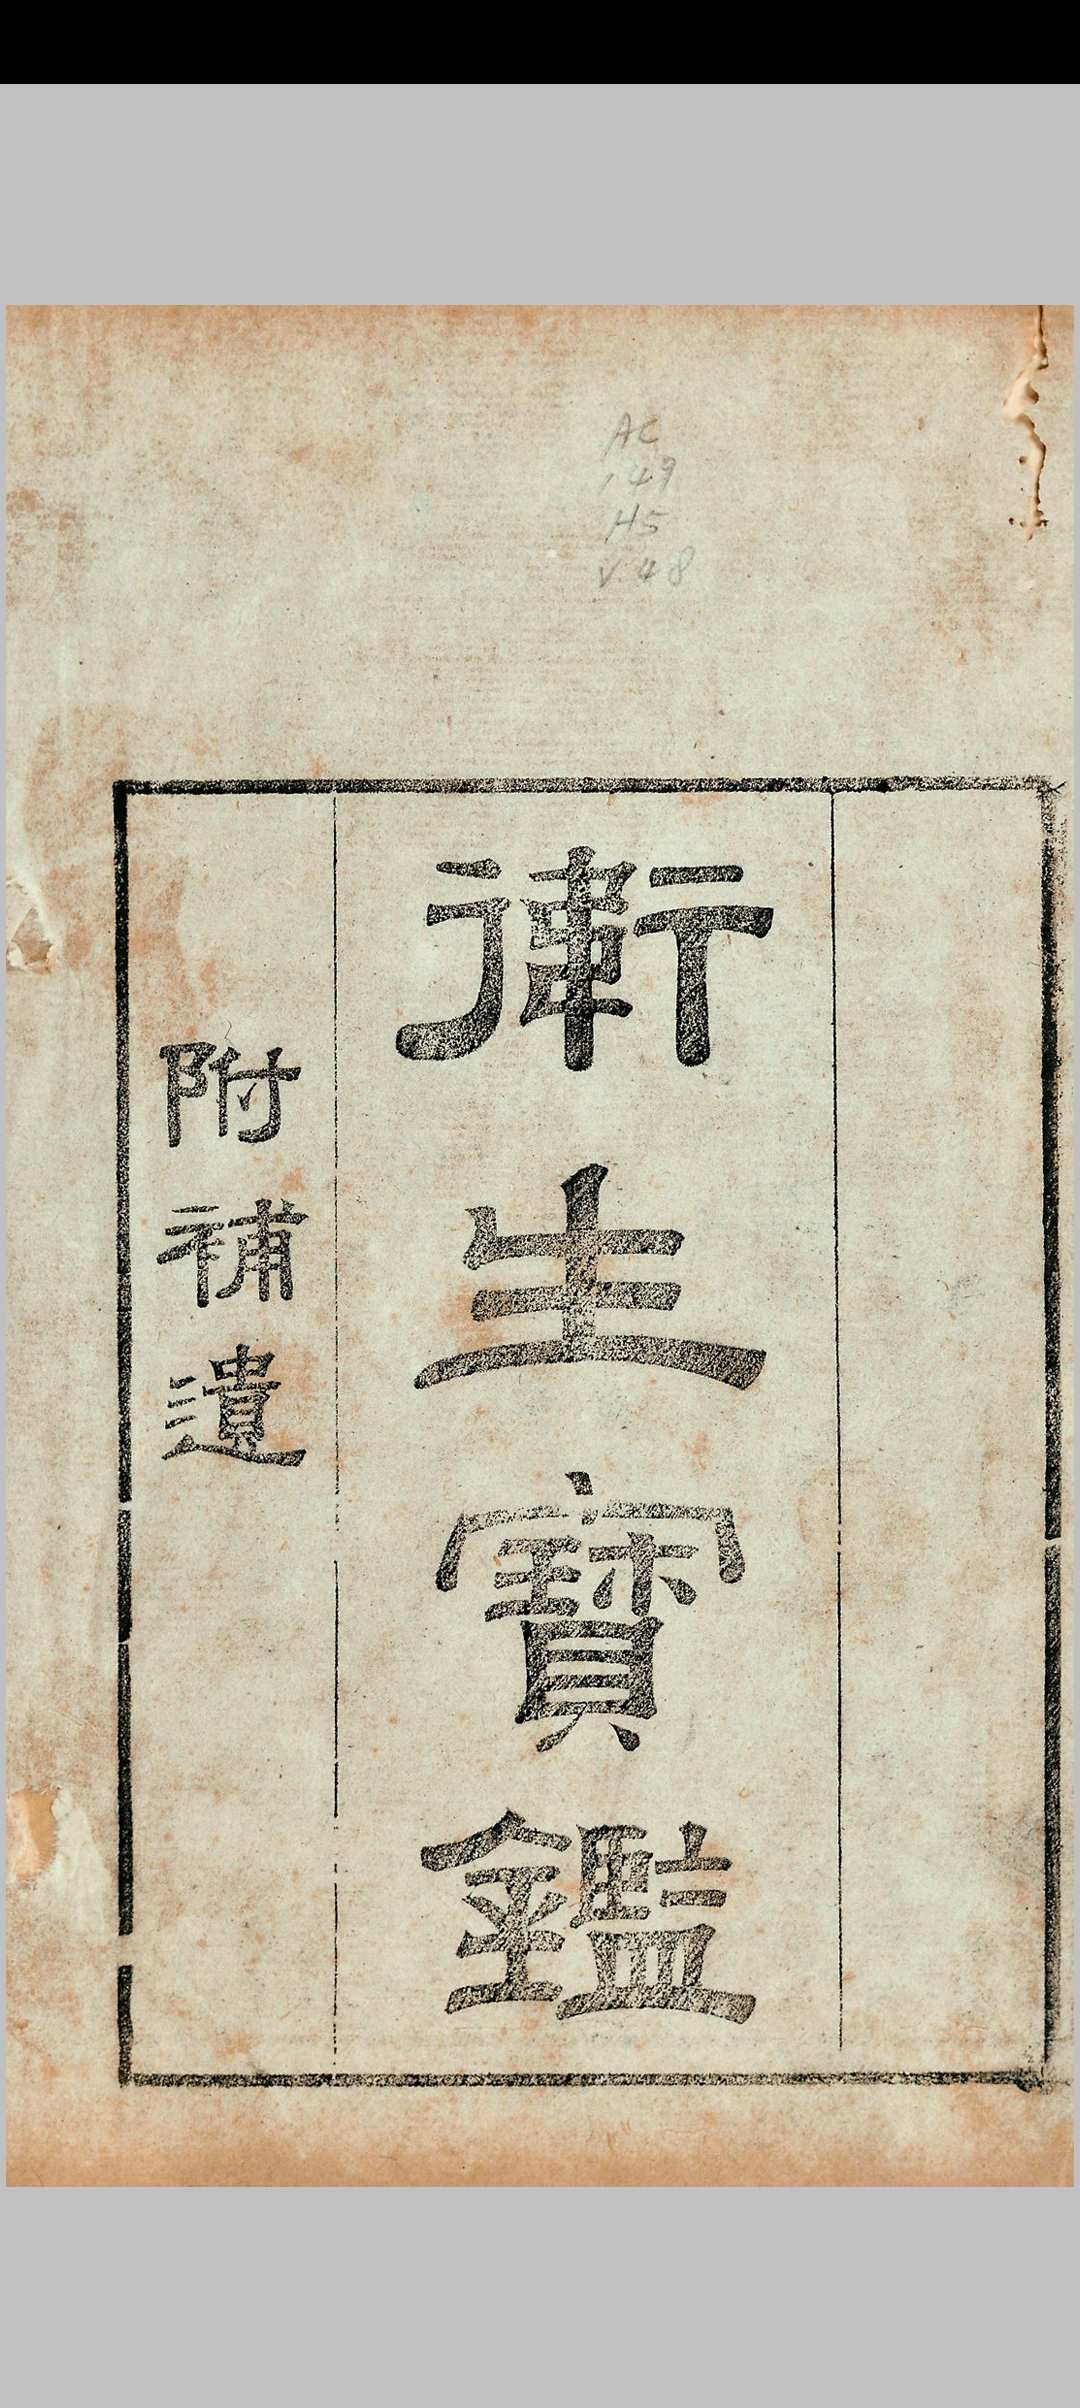 AC
149
H5
V.48
衛生寶鑑
附補遺